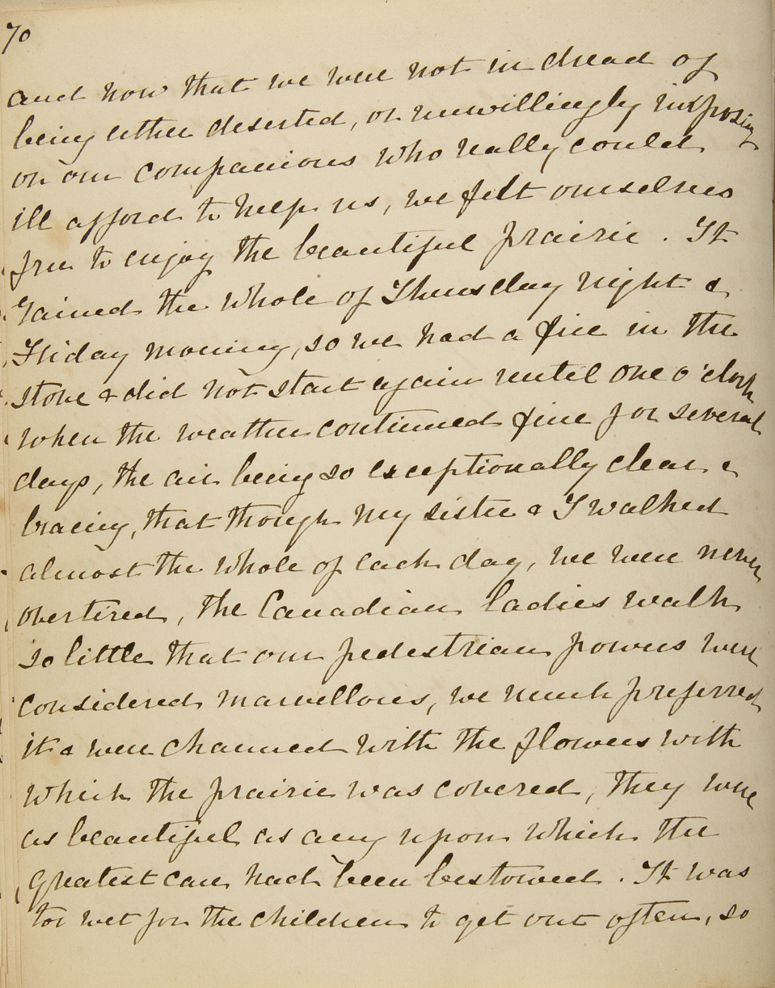 70
and now that we were not in dread of
being either deserted, or unwillingly imposing
on our companions who really could
ill afford to help us, we felt ourselves
free to enjoy the beautiful prairie. It
rained the whole of Thursday night &
Friday morning, so we had a fire in the
stove & did not start again until one o'clock
when the weather continued fine for several
days, the air being so exceptionally clear &
bracing, that though my sister & I walked
almost the whole of each day, we were never
overtired, the Canadian ladies walk
so little that our pedestrian powers were
considered marvellous, we much preferred
it & were charmed with the flowers with
which the prairie was covered, they were
as beautiful as any upon which the
greatest care had been bestowed. It was
too wet for the children to get out often, so